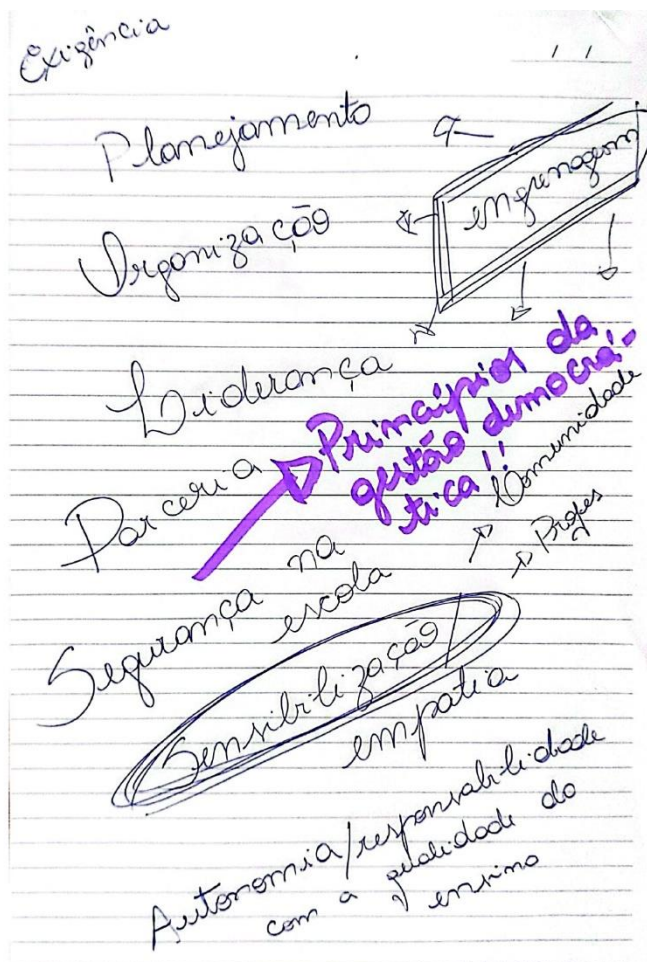 Exigência
/ /
Planejamento
engrenagem
Organização
Liderança
Princípios da
gestão democrá-
tica!!
Parceria
Comunidade
Profes
Segurança na
escola
Sensibilização
empatia
Autonomia/responsabilidade
com a qualidade do
ensino